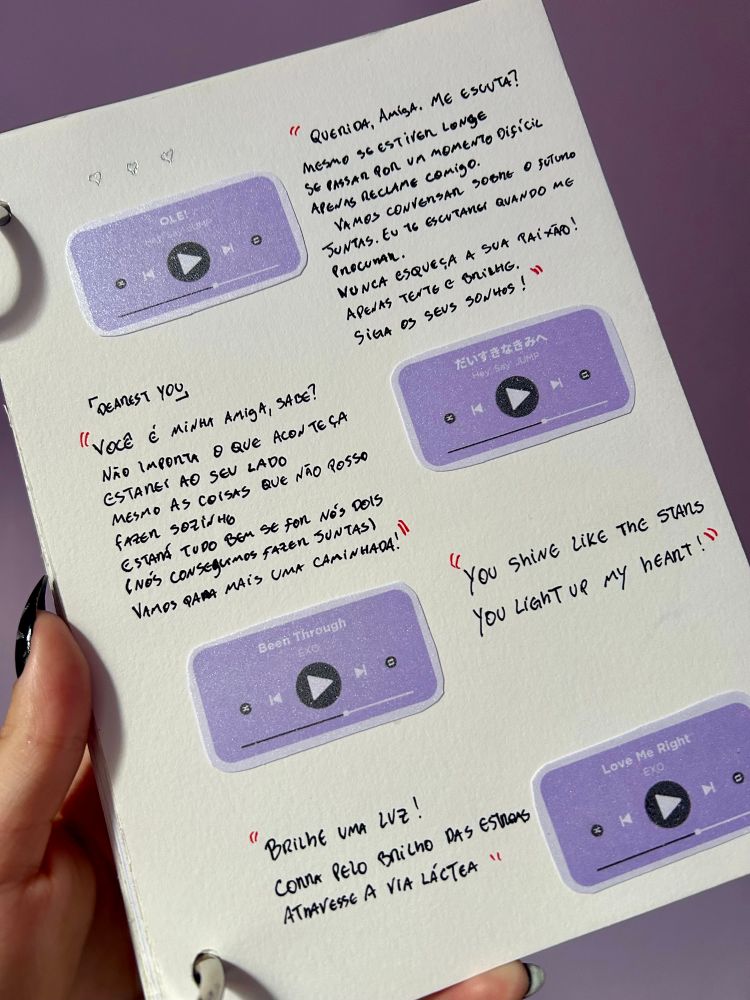 OLE!
Hey! Say! JUMP
" QUERIDA, AMIGA. ME ESCUTA?
MESMO SE ESTIVER LONGE
SE PASSAR POR UM MOMENTO DIFÍCIL
APENAS RECLAME COMIGO.
VAMOS CONVERSAR SOBRE O FUTURO
JUNTAS. EU TE ESCUTAREI QUANDO ME
PROCURAR.
NUNCA ESQUEÇA A SUA PAIXÃO!
APENAS TENTE E BRILHE.
SIGA OS SEUS SONHOS! "
だいすきなきみへ
Hey! Say! JUMP
「DEAREST YOU」
"VOCÊ É MINHA AMIGA, SABE?
NÃO IMPORTA O QUE ACONTEÇA
ESTAREI AO SEU LADO
MESMO AS COISAS QUE NÃO POSSO
FAZER SOZINHO
ESTARÁ TUDO BEM SE FOR NÓS DOIS
(NÓS CONSEGUIMOS FAZER JUNTAS)
VAMOS PARA MAIS UMA CAMINHADA!"
Been Through
EXO
"YOU SHINE LIKE THE STARS
YOU LIGHT UP MY HEART!"
Love Me Right
EXO
" BRILHE UMA LUZ!
CORRA PELO BRILHO DAS ESTRELAS
ATRAVESSE A VIA LÁCTEA "